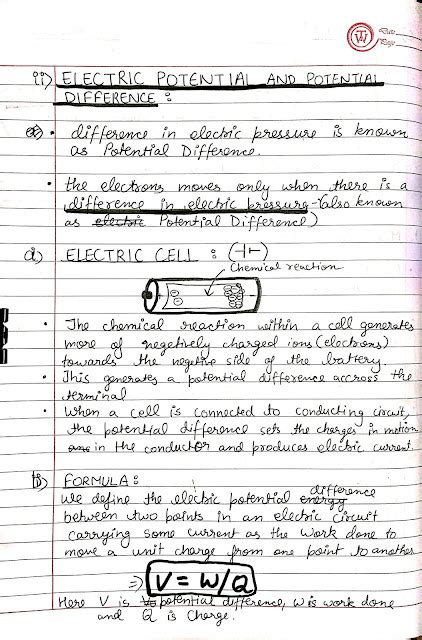 Date
Page
ii) ELECTRIC POTENTIAL AND POTENTIAL
DIFFERENCE :
• difference in electric pressure is known
as Potential Difference.
• the electrons moves only when there is a
difference in electric pressure (also known
as electric Potential Difference)
a) ELECTRIC CELL :
Chemical reaction
• The chemical reaction within a cell generates
more of negetively charged ions (electrons)
towards the negetive side of the battery.
• This generates a potential difference accross the
terminal
• When a cell is connected to conducting circuit,
the potential difference sets the charges in motion
in the conductor and produces electric current.
b) FORMULA :
We define the electric potential energy difference
between two points in an electric circuit
carrying some current as the work done to
move a unit charge from one point to another
⇒ V = W/Q
Here V is potential difference, W is work done
and Q is charge.